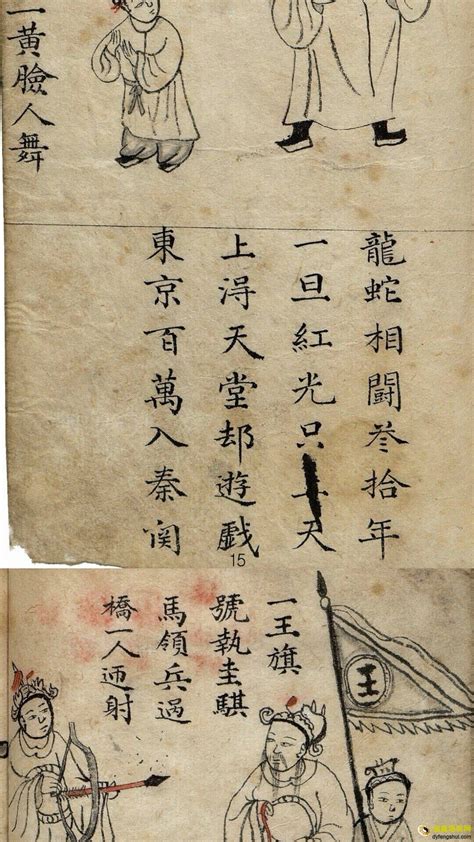 一黃臉人舞
龍蛇相鬪叁拾年
一旦紅光只天
上淂天堂却遊戲
東京百萬入秦関
15
一王旗
號執圭騏
馬領兵過
橋一人迊射
王
dyfengshui.com